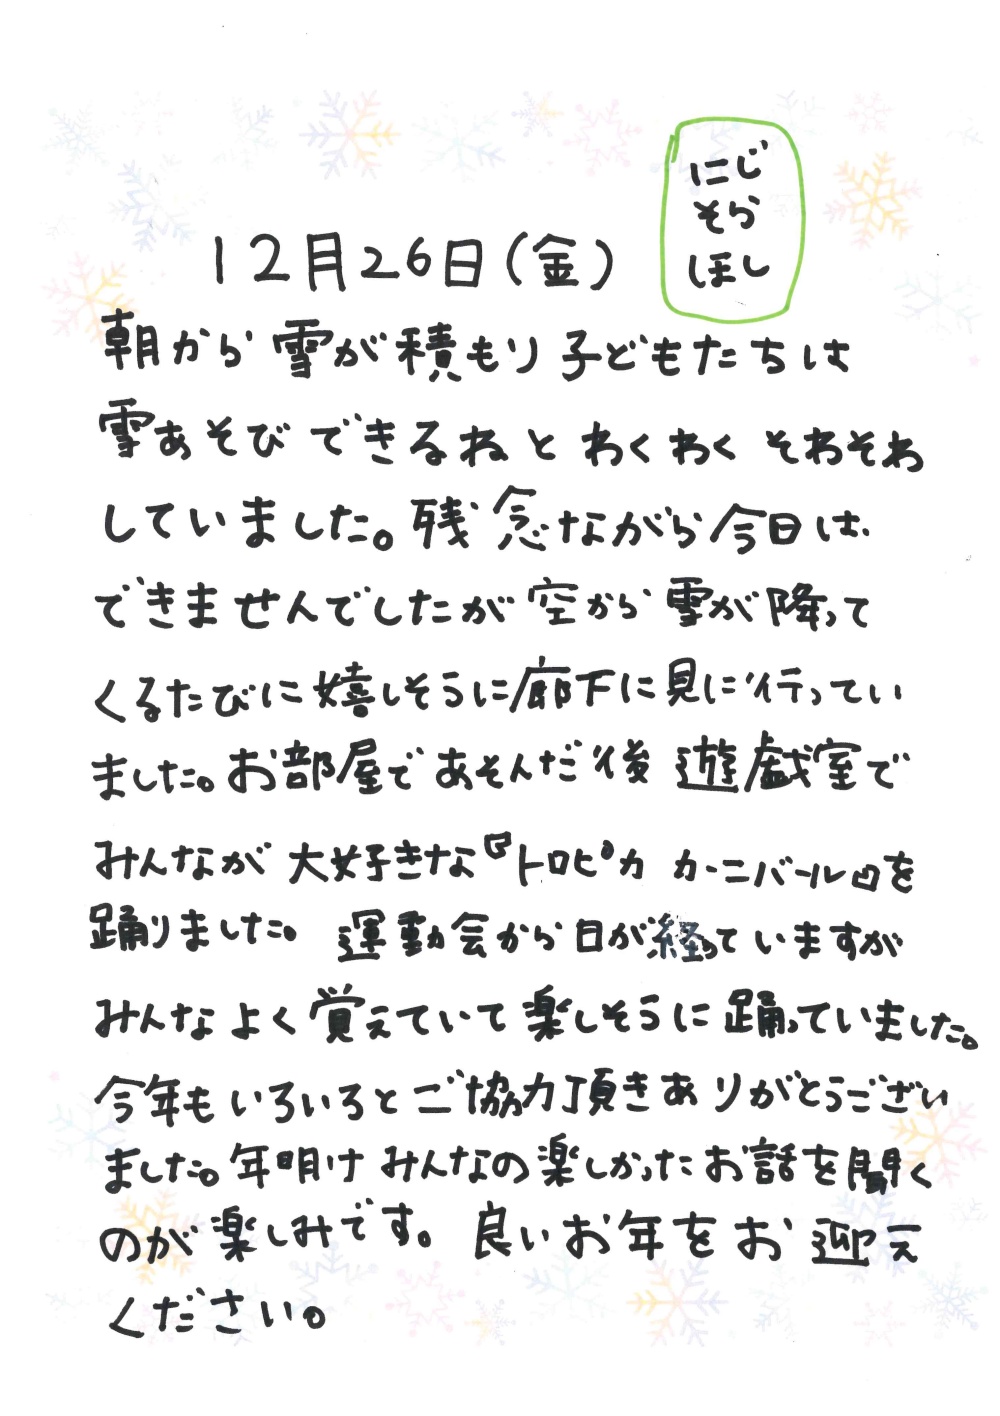 にじ
そら
ほし
12月26日(金)
朝から雪が積もり子どもたちは
雪あそびできるねとわくわくそわそわ
していました。残念ながら今日は、
できませんでしたが空から雪が降って
くるたびに嬉しそうに廊下に見に行ってい
ました。お部屋であそんだ後遊戯室で
みんなが大好きな『トロピカカーニバール』を
踊りました。運動会から日が経っていますが
みんなよく覚えていて楽しそうに踊っていました。
今年もいろいろとご協力頂きありがとうござい
ました。年明けみんなの楽しかったお話を聞く
のが楽しみです。良いお年をお迎え
ください。